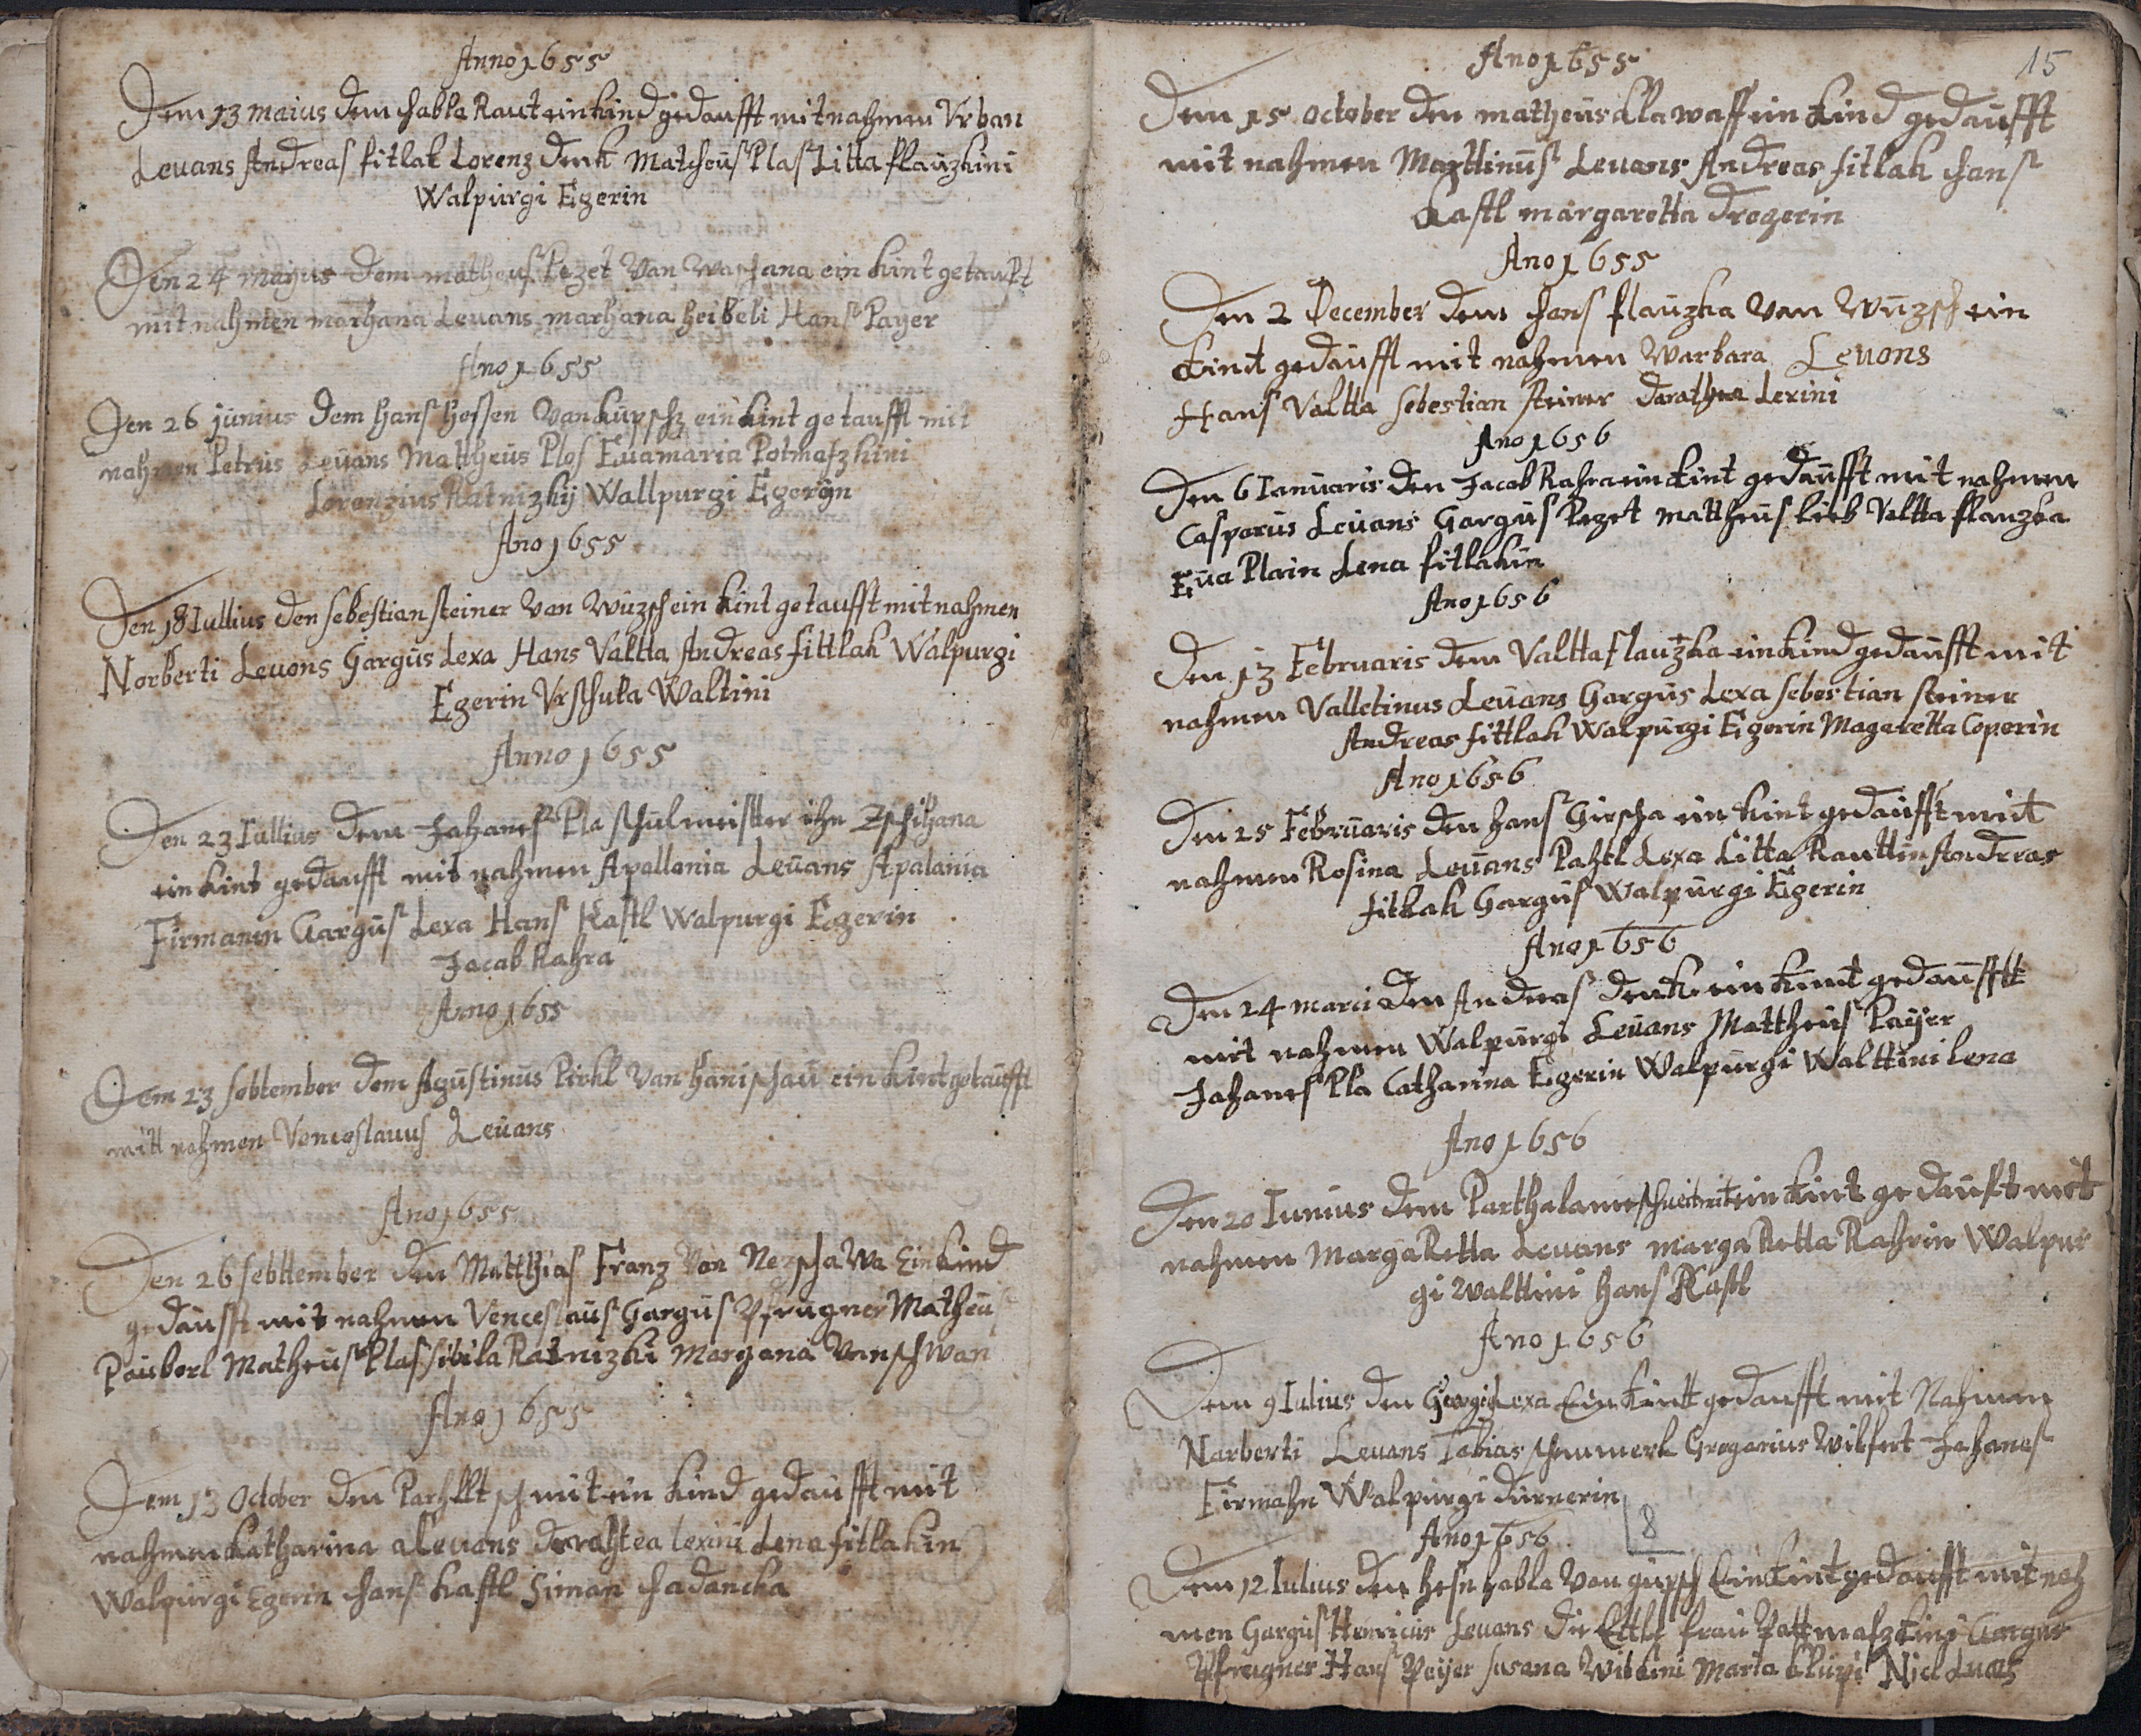 Anno 1655
Dem 13 maius dem habla Raut ein kind gedaufft mit nahmen Vrban
Leuans Andreas fitlak Lorenz denk Matheus Plas Litta flauzkini
Walpurgi Egerin
Den 24 mayus dem matheus Pezet Van ein kint getauft
mit nahmen marhana Leuans marhana heibeli Hans Payer
Ano 1655
Den 26 junius dem hans hossen Van kupsch ein kint getaufft mit
nahmen Petrus Leuans Mattheus Plos Euamaria Potmaszkini
Lorenzius Ratnizkij Wallpurgi Egeryn
Ano 1655
Den 18 Iullius den sebestian steiner Van Wuzsch ein kint getaufft mit nahmen
Norberti Leuons Gargus Lexa Hans Valtta Andreas fittlak Walpurgi
Egerin Vrschula Waltini
Anno 1655
Den 23 Iullius dem Jahanes Pla schulmeister ihn Zschihana
ein kint gedaufft mit nahmen Apollonia Leuans Apalania
Firmanin Gargus Lexa Hans Kastl Walpurgi Egerin
Jacab Rahra
Anno 1655
Dem 23 sebtember dem Agustinus Pirkl Van hanischau ein kint getaufft
mitt nahmen Venceslauus Leuans
Ano 1655
Den 26 sebttember den Matthias Franz Von Nerschawa Ein kind
gedaufft mit nahmen Venceslaus Gargus Pfrugner Matheus
Pauberl Matheus Plas sibila Ratnizki Margana Vonschwan
Ano 1655
Dem 13 October den Parhllt schmit ein kind gedaufft mit
nahmen katharina a Leuans derahtea lexini Lena fitlakin
Walpurgi Egerin hans kastl Siman hadancka
15
Ano 1655
Dem 15 October den matheus klawass ein kind gedaufft
mit nahmen Marttinus Leuans Andreas fitlak hans
kastl margaretta dregerin
Ano 1655
Den 2 December dem hans flauzka Van Wuzsch ein
kint gedaufft mit nahmen Warbara Leuons
Hans Valtta sebestian steiner darathea Lexini
Ano 1656
Den 6 Ianuaris den Jacab Rahra ein kint gedaufft mit nahmen
Casparus Leuans Gargus Pezet mattheus lieb Valtta flauzka
Eua Plain Lena fitlakin
Ano 1656
Den 13 Februaris dem Valtta flauzka ein kind gedaufft mit
nahmen Valletinus Leuans Gargus Lexa sebestian steiner
Andreas fittlak Walpurgi Egerin Magaretta Coperin
Ano 1656
Den 25 Februaris den hans Girscha ein kint gedaufft mit
nahmen Rosina Leuans Pahtl Lexa Litta Rauttin Andreas
fitlak Gargus Walpurgi Egerin
Ano 1656
Den 24 marci den Andreas denk ein kint gedaufftt
mit nahmen Walpurgi Leuans Mattheus Payer
Jahanes Pla Catharina Egerin Walpurgi Walttini lena
Ano 1656
Den 20 Iunius dem Parthalame ein kint gedauft mit
nahmen MargaRetta Leuans margaRetta Rahrin Walpur
gi Walttini hans Kastl
Ano 1656
Dem 9 Iulius den Georgi Lexa Ein kintt gedaufft mit Nahmen
Narberti Leuans Tabias schmmerl Gregorius Wilfert Jahanes
Firmahn Walpurgi durnerin
8
Ano 1656
Dem 12 Iulius den habla Van gupsch Ein kint gedaufft mit nah
men Gargus Henricus Leuans die Ettle frau Pattmaszkini Gargus
Pfrugner Hans Peyer susana Wibkini Marta klupi Nicl Lucas